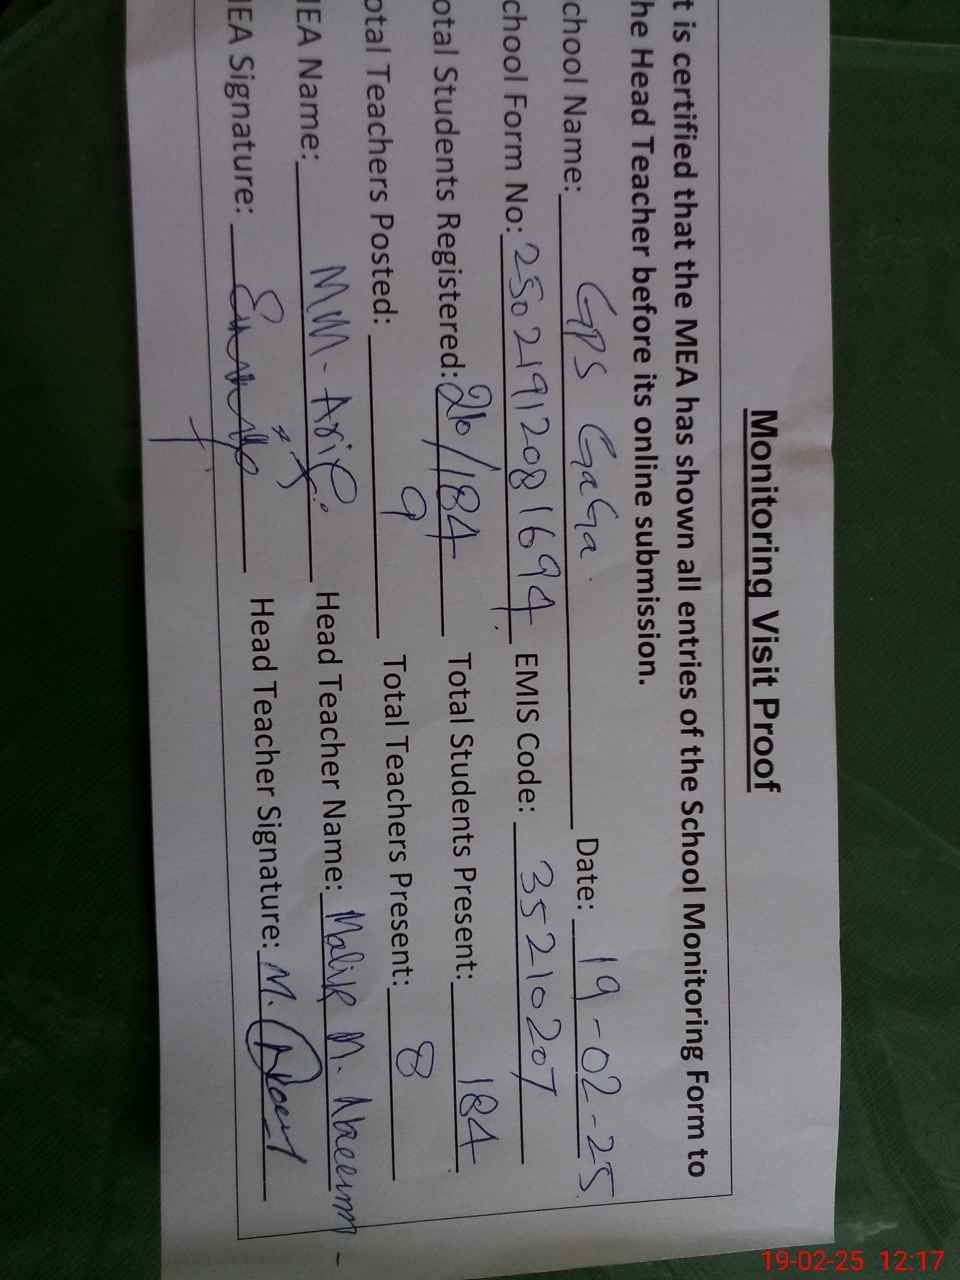 Monitoring Visit Proof
t is certified that the MEA has shown all entries of the School Monitoring Form to
he Head Teacher before its online submission.
chool Name: GPS GaGa Date: 19-02-25
chool Form No: 2502191208 1694 EMIS Code: 35210207
otal Students Registered: 216/184 Total Students Present: 184
otal Teachers Posted: 9 Total Teachers Present: 8
EA Name: MM- Arif Head Teacher Name: Malik M. Naeem
EA Signature: Head Teacher Signature: M.
19-02-25 12:17